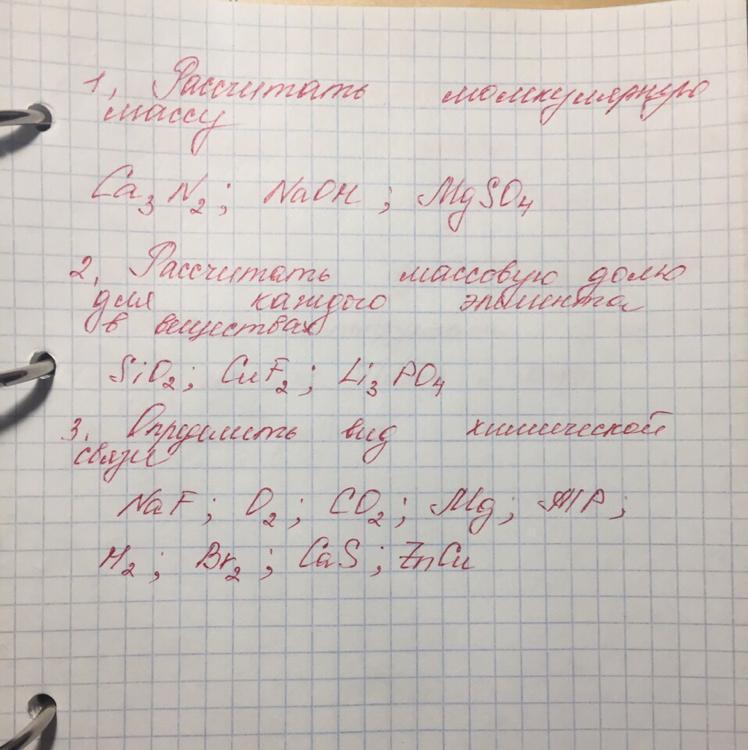 1, Рассчитать молекулярную
массу
Ca₃N₂; NaOH; MgSO₄
2, Рассчитать массовую долю
для каждого элемента
в веществах
SiO₂; CuF₂; Li₃PO₄
3. Определить вид химической
связи
NaF; O₂; CO₂; Mg; AlP;
H₂; Br₂; CaS; ZnCu